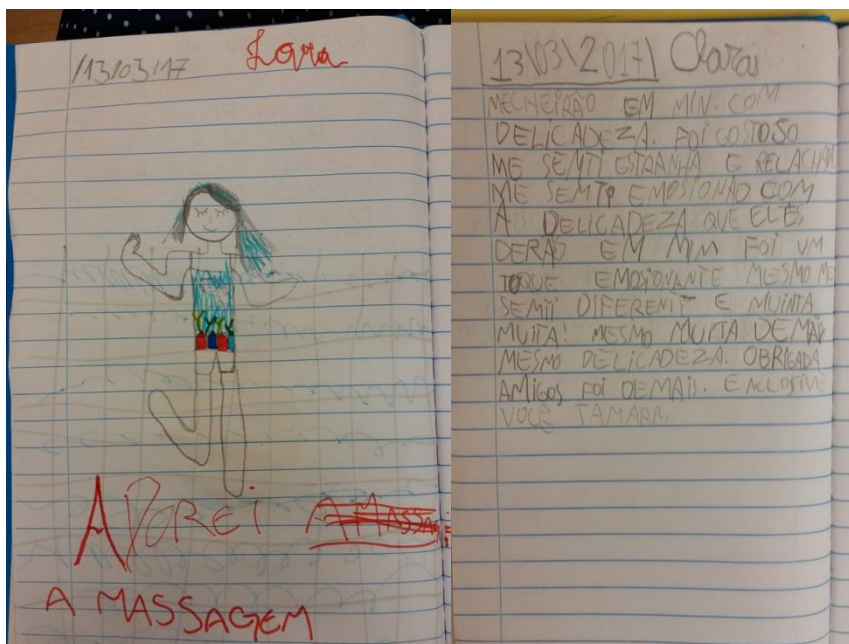 /13/03/17 Lora
ADOREI A MASSA
A MASSAGEM
13\03\2017\ Clara
MECHEIRÃO EM MIN. COM
DELICADEZA. FOI GOSTOSO
ME SENTI ESTRANHA E RELACHA
ME SEMTI EMOSIONAO COM
A DELICADEZA QUE ELES
DERÃO EM MIM FOI UM
TOQUE EMOSIONANTE MESMO ME
SEMTI DIFERENTE E MUINTA
MUITA! MESMO MUITA DEMAIS
MESMO DELICADEZA. OBRIGADA
AMIGOS FOI DEMAIS. ENCLOSIVE
VOCÊ TAMARA.